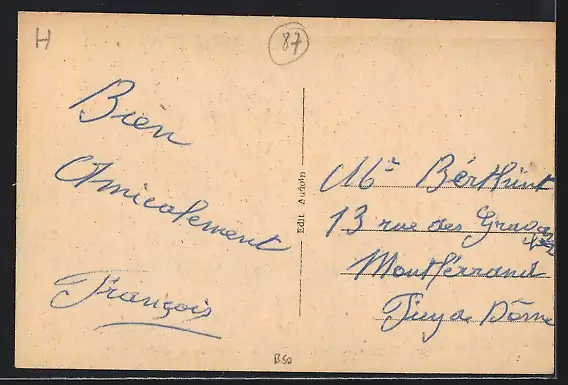 H
87
Bien
Amicalement
François
Edit. Audoin
Mr Berthint
13 rue des
Montferrand
Puy de Dôme
B50